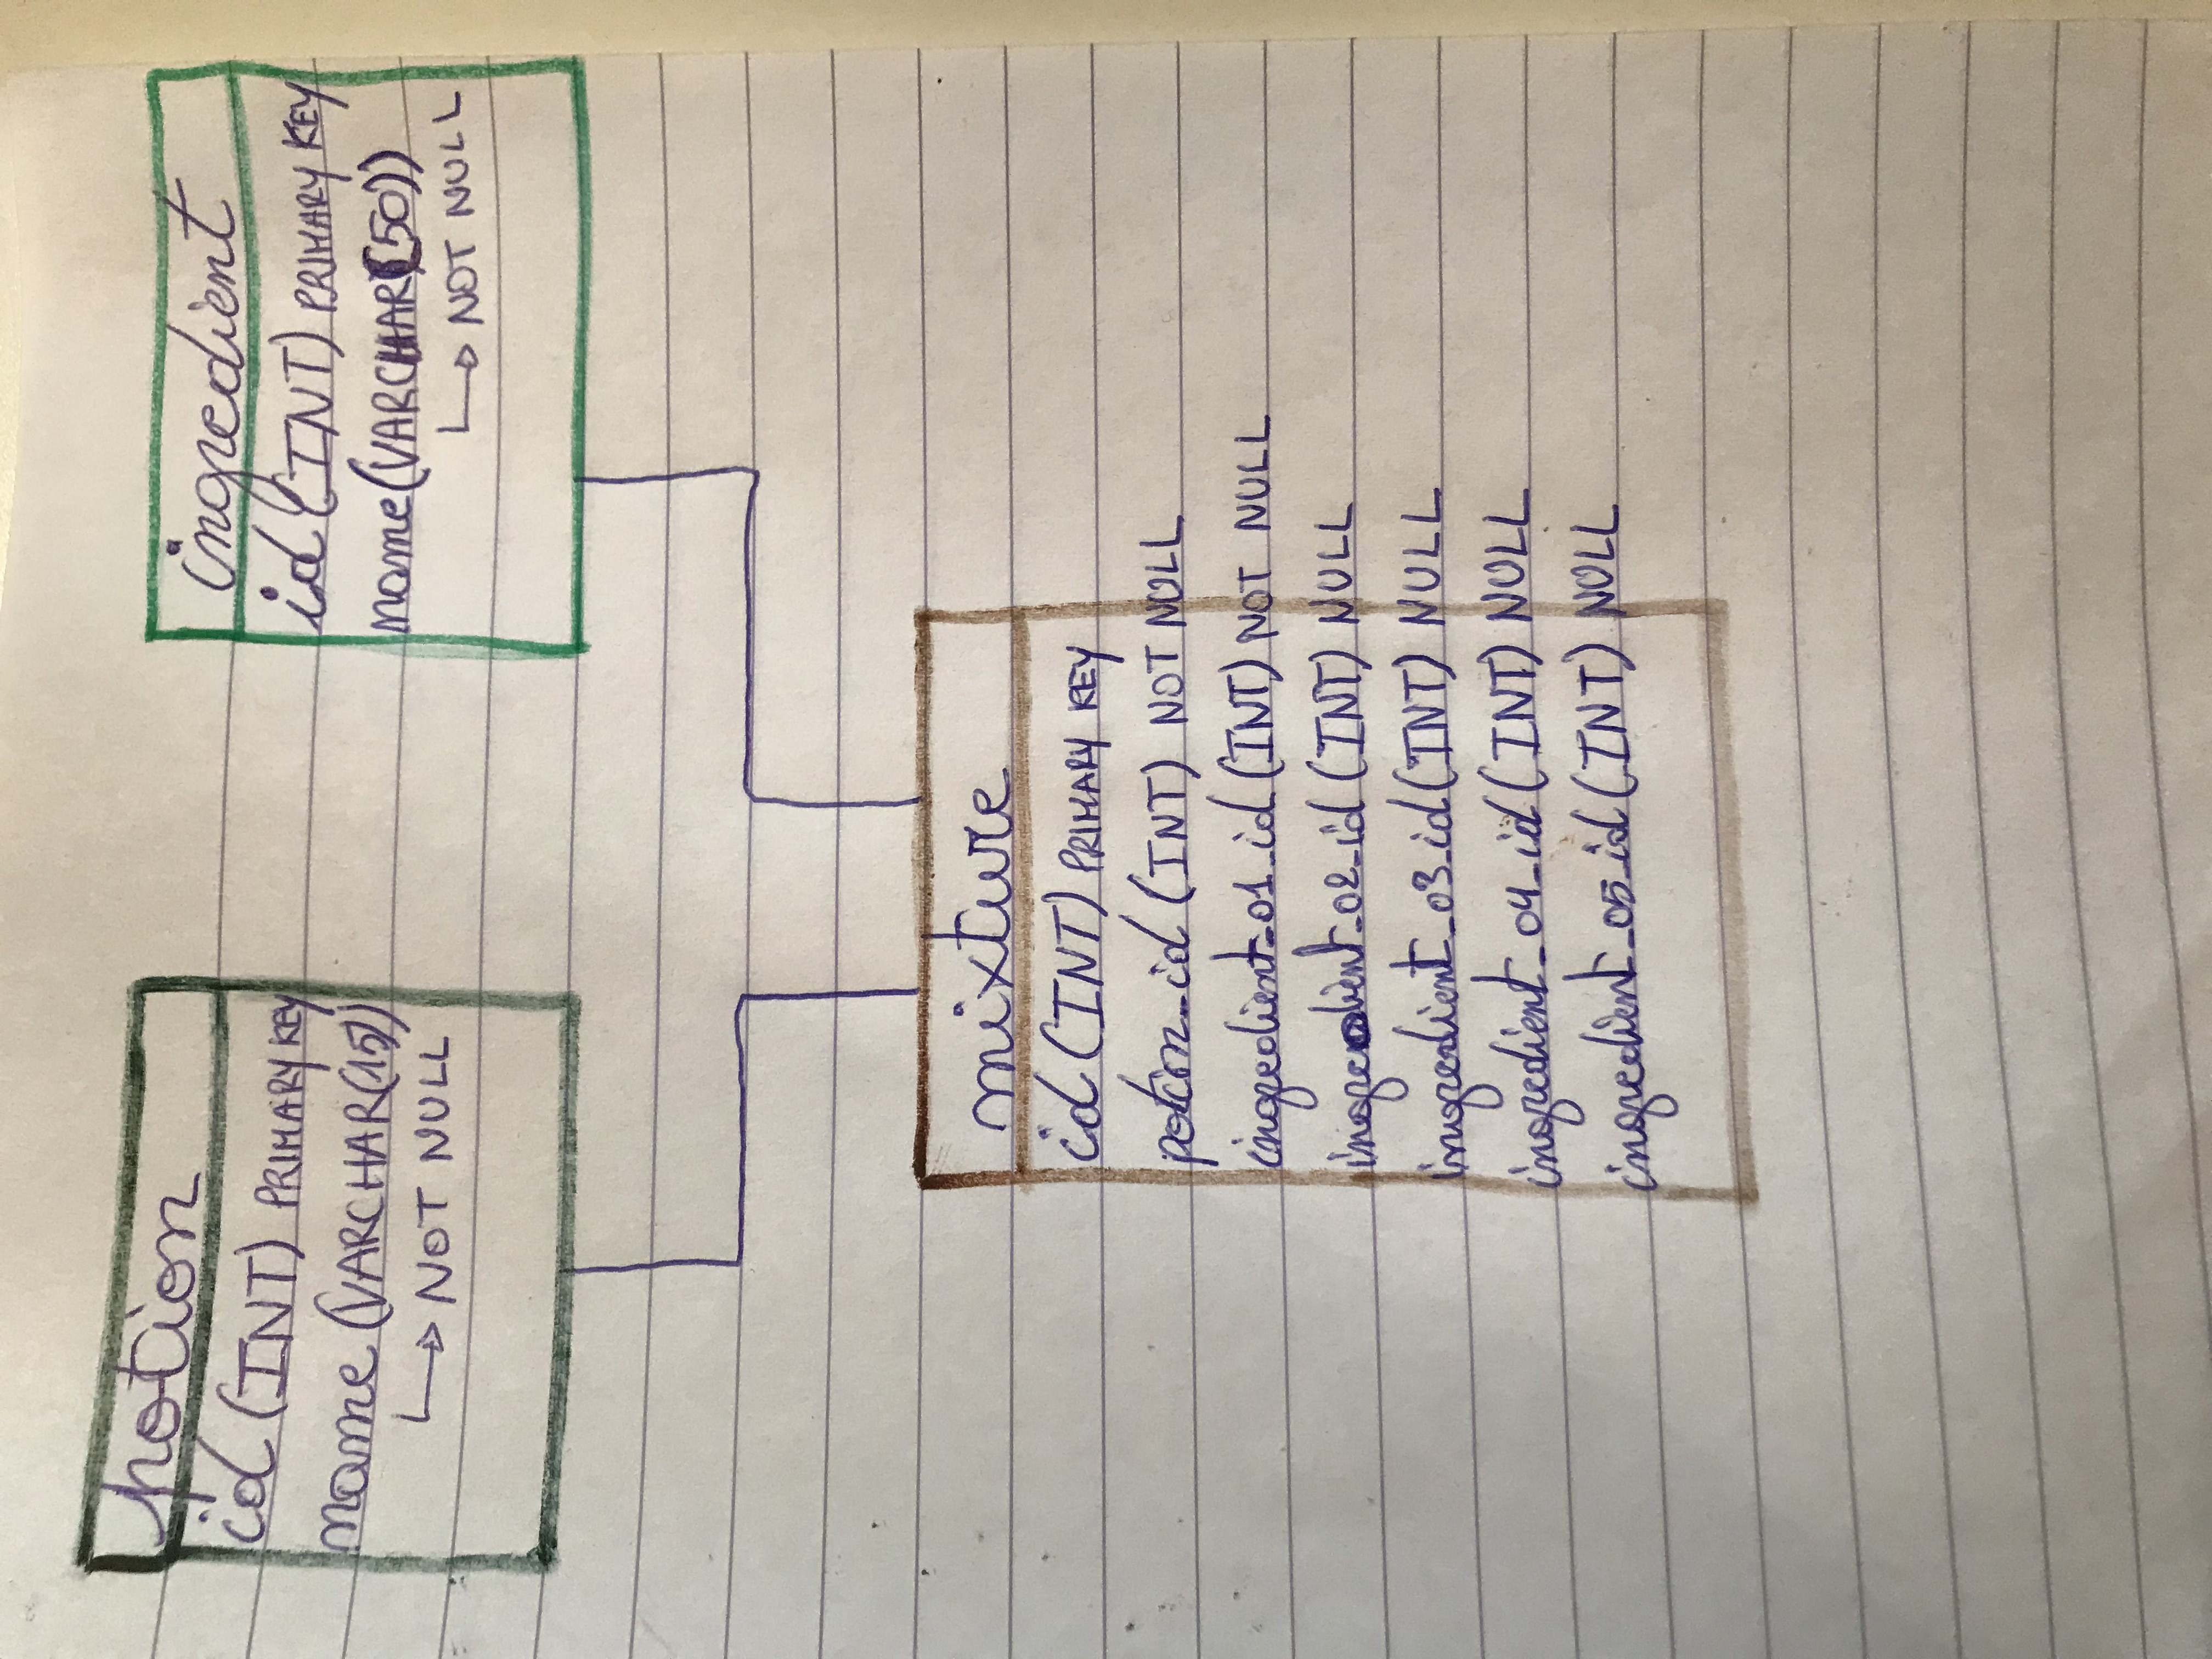 potion
id (INT) PRIMARY KEY
name (VARCHAR(15))
NOT NULL
ingredient
id (INT) PRIMARY KEY
name (VARCHAR(50))
NOT NULL
mixture
id (INT) PRIMARY KEY
potion_id (INT) NOT NULL
ingredient_01_id (INT) NOT NULL
ingredient_02_id (INT) NULL
ingredient_03_id (INT) NULL
ingredient_04_id (INT) NULL
ingredient_05_id (INT) NULL